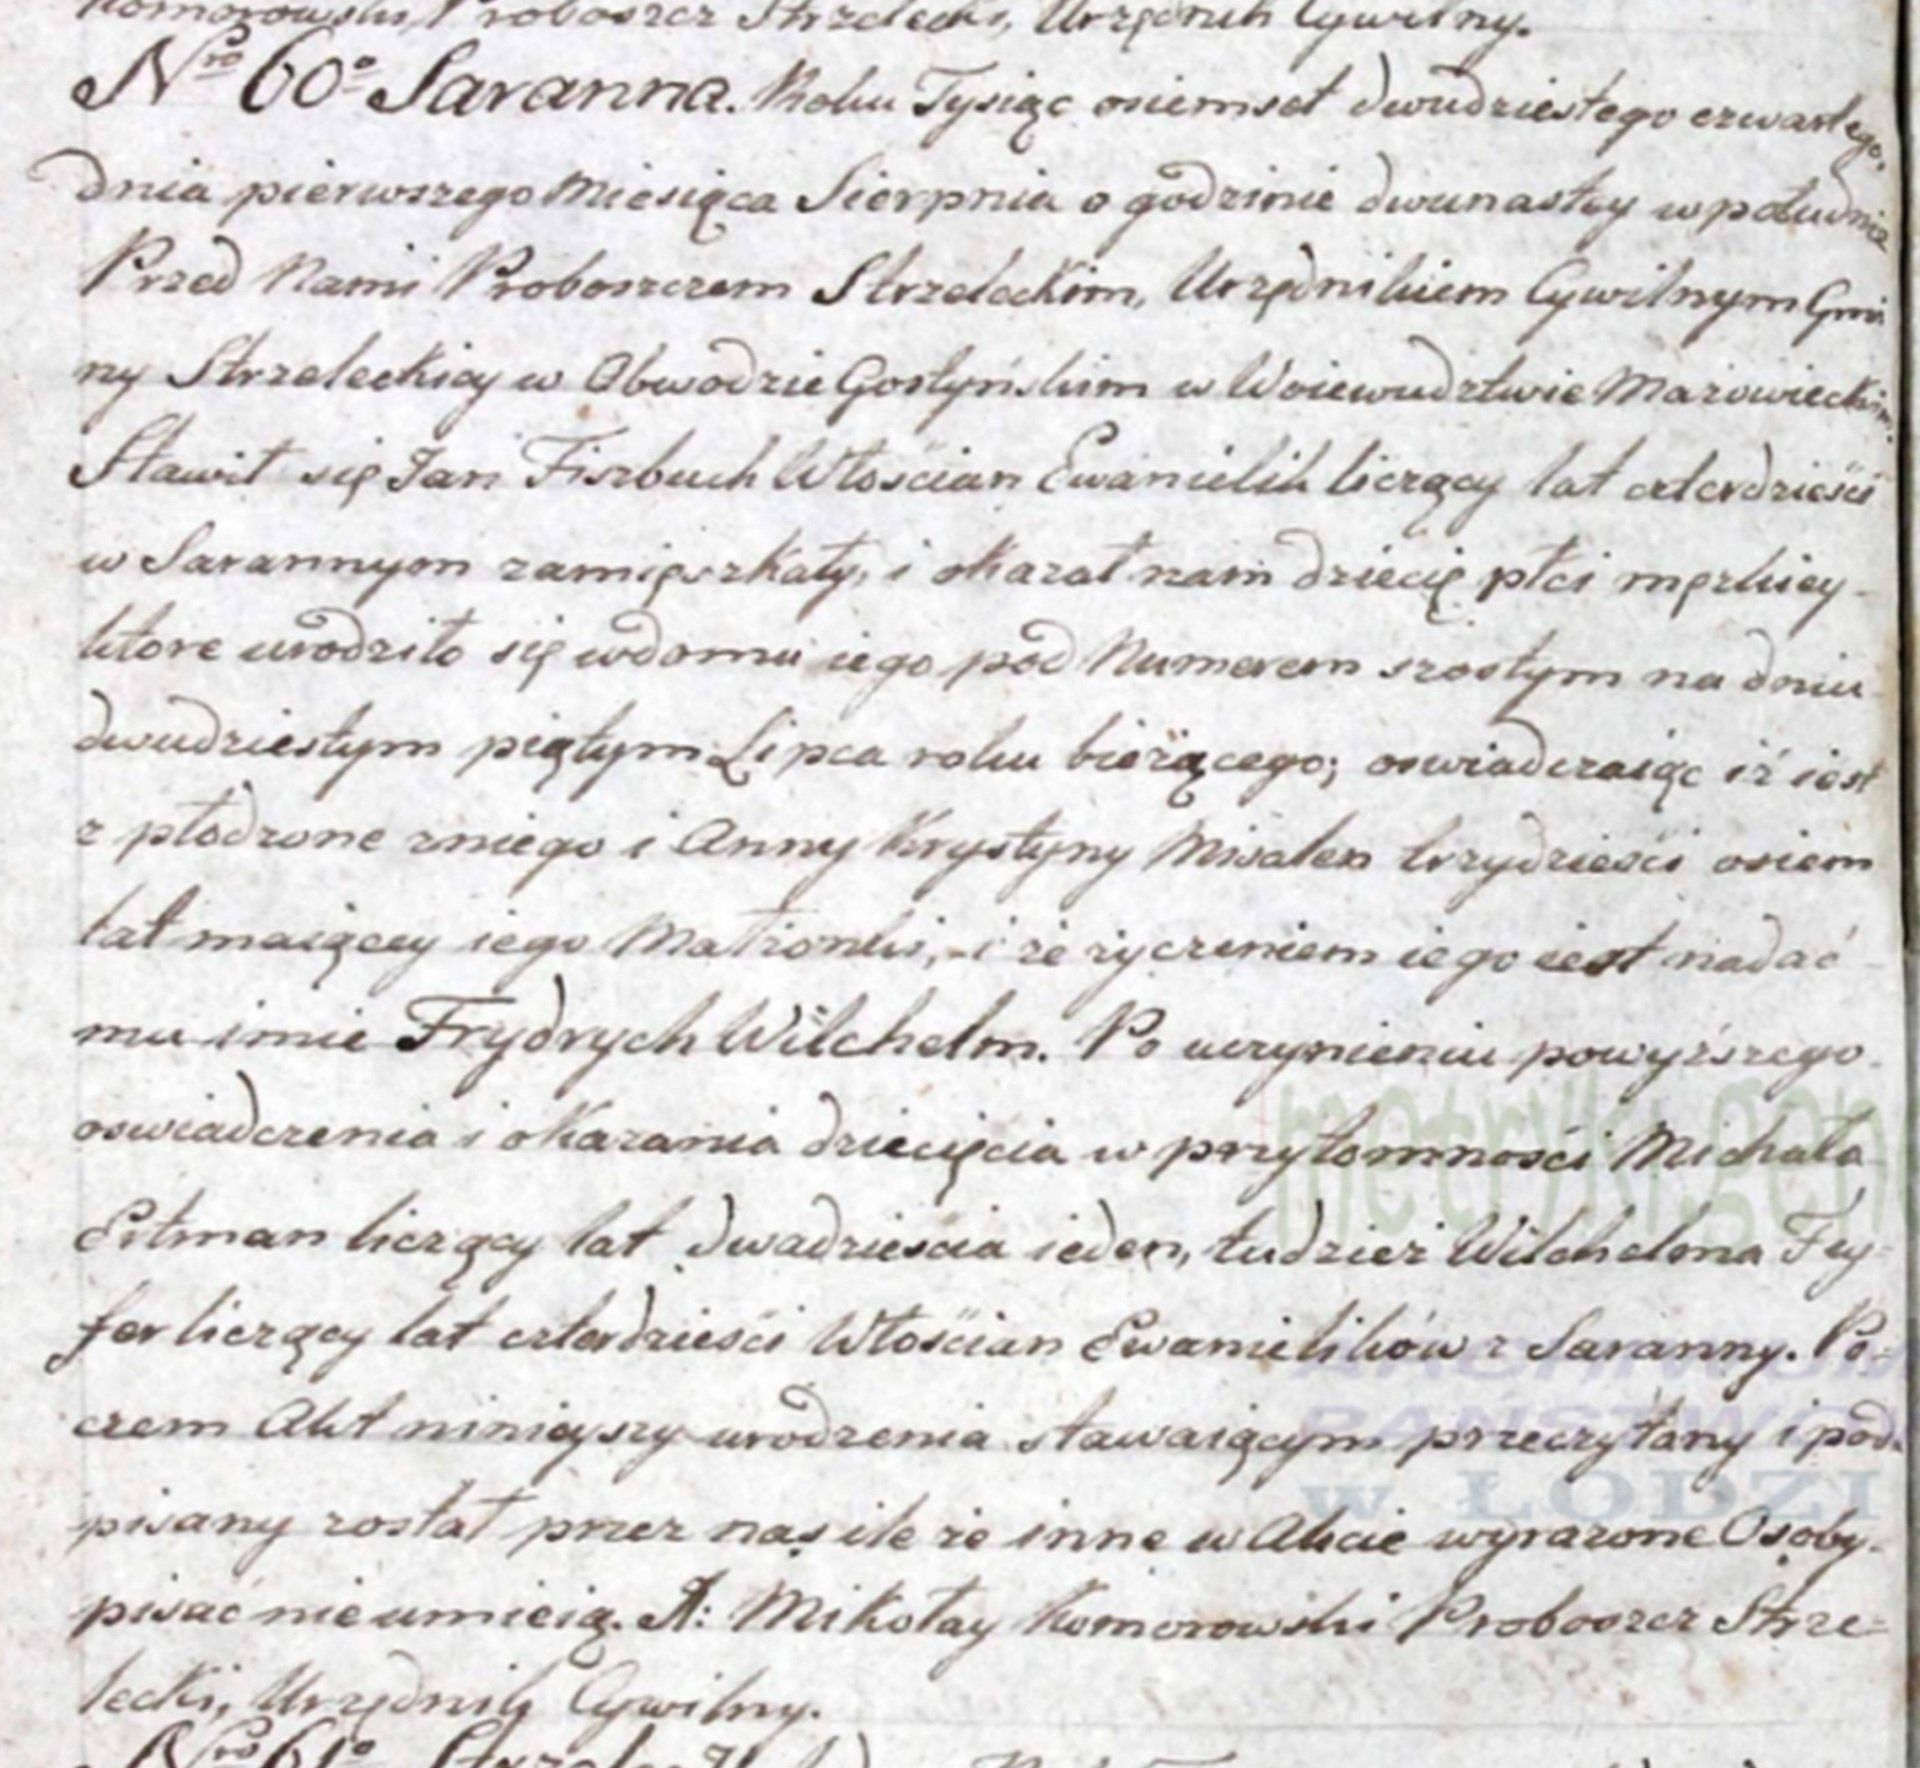 Komorowski, Proboszcz Strzelecki, Urzędnik Cywilny.
Nro 60o Saranna. Roku Tysiąc osiemset dwudziestego czwartego,
dnia pierwszego Miesiąca Sierpnia o godzinie dwunastey w południe
Przed Nami Proboszczem Strzeleckim, Urzędnikiem Cywilnym Gmi
ny Strzeleckiey w Obwodzie Gostyńskim w Woiewudztwie Mazowieckim.
Stawił się Jan Fiszbuch Włościan Ewanielik liczący lat czterdzieści
w Sarannym zamięszkały, i okazał nam dziecię płci męzkiey
ktore urodziło się wdomu iego pod Numerem szostym na dniu
dwudziestym piątym Lipca roku bieżącego; oswiadczaiąc iż iest
z płodzone zniego i Anny Krystyny Misalen trzydzieści osiem
lat maiącey iego Małzonki, i że zyczeniem iego iest nadać
mu imie Frydrych Wilchelm. Po uczynieniu powyższego
oswiadczenia i okazania dziecięcia w przytomności Michała
Ertman liczący lat dwadzieścia ieden, tudzież Wilchelma Fry
fer liczący lat czterdzieści Włościan Ewanielików z Saranny. Po=
czem Akt ninieyszy urodzenia stawaiącym przeczytany i pod=
pisany został przez nas ile że inne w Akcie wyrazone Osoby
pisać nie umieią. X: Mikołay Komorowski Proboszcz Strze=
lecki, Urzędnik Cywilny.
Nro 61o
metryki.gen
PAŃSTWO
w ŁODZI